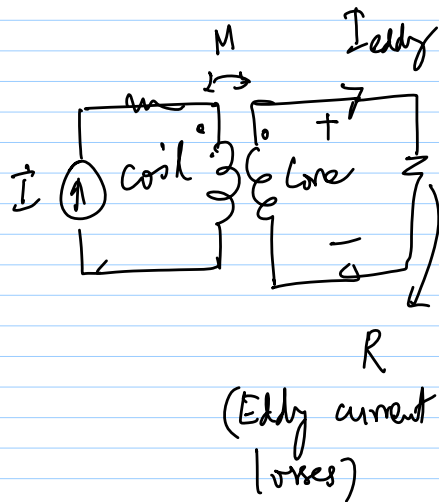 M
I eddy
I
coil
core
+
−
R
(Eddy current
losses)